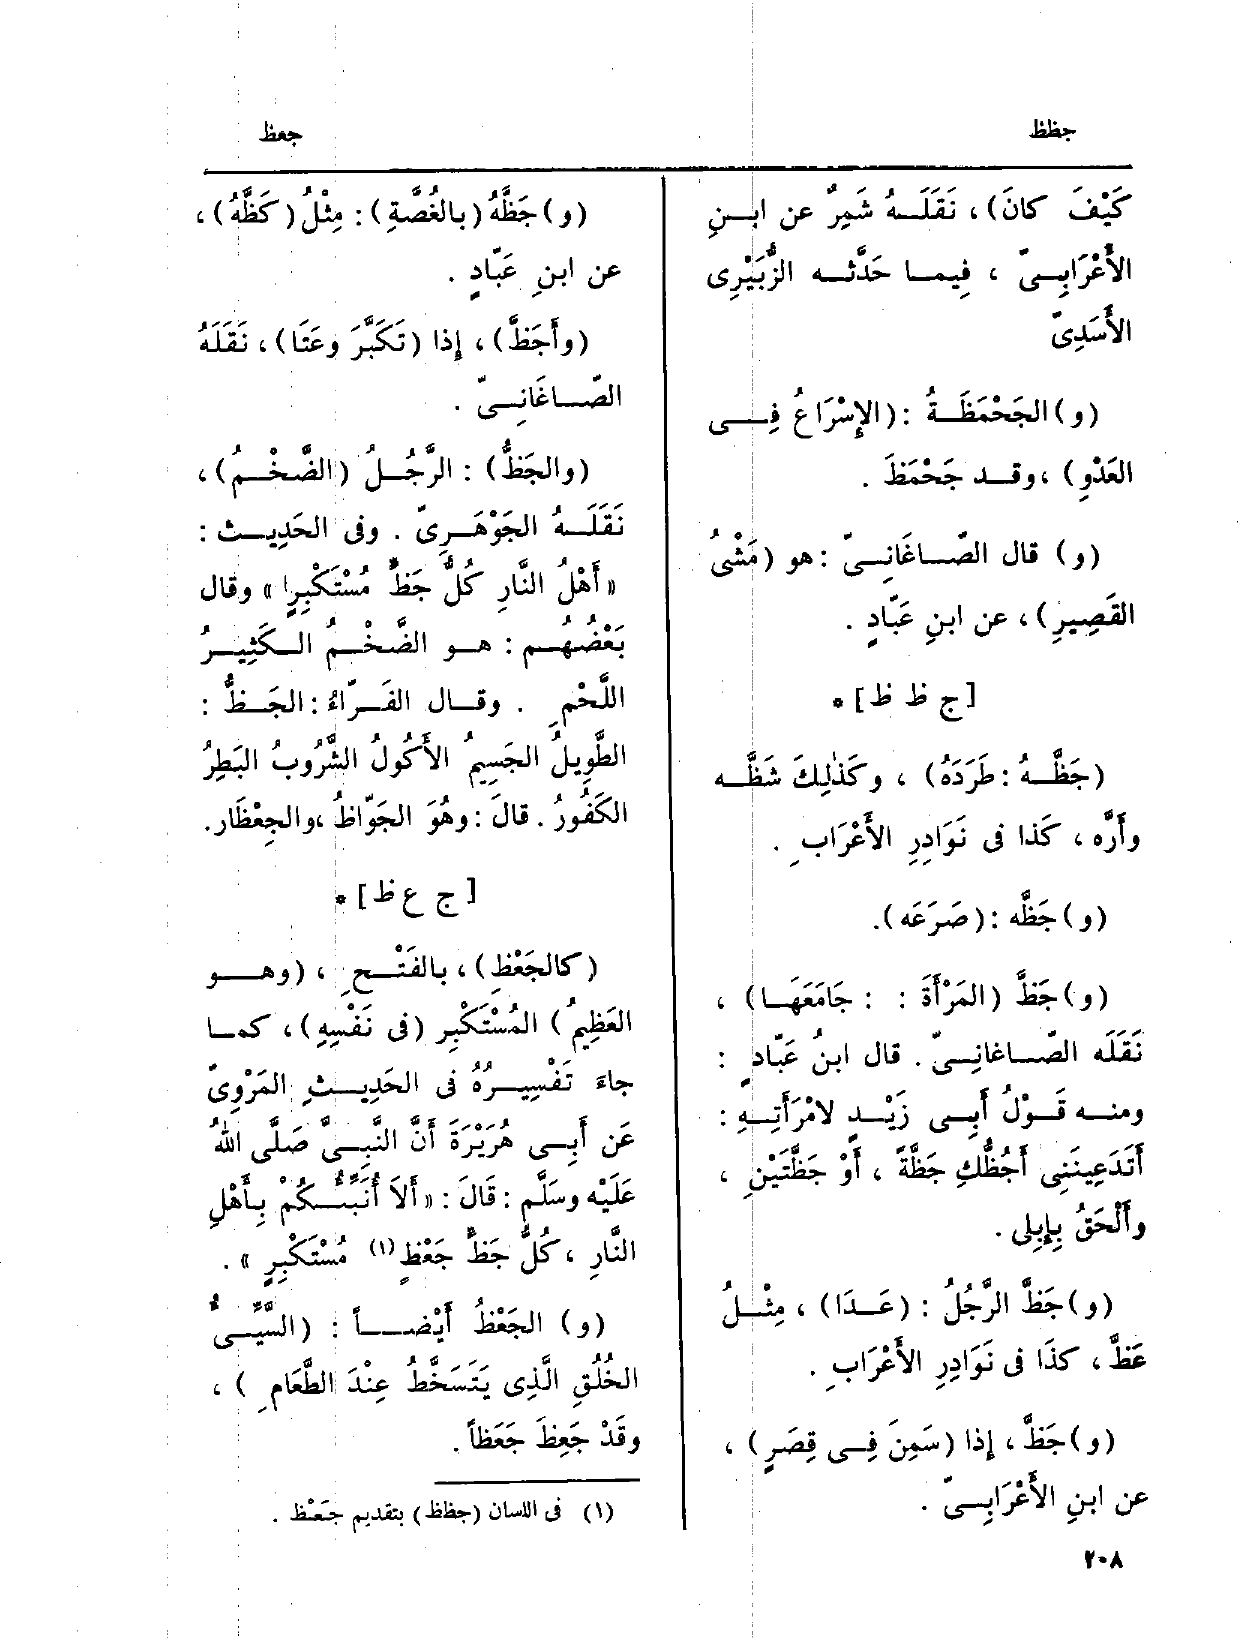 جظظ
جعظ
كَيْفَ كانَ) ، نَقَلَــهُ شَمِرٌ عن ابــنِ
الأَعْرَابِــىّ ، فِيمــا حَدَّثــه الزُّبَيْرِى
الأَسَدِىّ
(و) الجَحْمَظَــةُ : (الإِسْرَاعُ فِــى
العَدْوِ) ، وقــد جَحْمَظَ .
(و) قال الصّــاغَانِــىّ : هو (مَشْىُ
القَصِيرِ) ، عن ابنِ عَبّادٍ .
[ ج ظ ظ ] *
(جَظَّــهُ : طَرَدَهُ) ، وكَذٰلِكَ شَظَّــه
وأَرَّه ، كَذا فى نَوَادِرِ الأَعْرَابِ .
(و) جَظَّه : (صَرَعَه) .
(و) جَظَّ (المَرْأَةَ : : جَامَعَهَــا) ،
نَقَلَه الصّــاغانِــىّ . قال ابنُ عَبّادٍ :
ومنــه قَــوْلُ أَبِــى زَيْــدٍ لامْرَأَتِــهِ :
أَتَدَعِينَنِى أَجُظُّكِ جَظَّةً ، أَوْ جَظَّتَيْنِ ،
وأَلْحَقُ بِإِبِلِى .
(و) جَظَّ الرَّجُلُ : (عَــدَا) ، مِثْــلُ
عَظَّ ، كَذَا فى نَوَادِرِ الأَعْرَابِ .
(و) جَظَّ ، إِذا (سَمِنَ فِــى قِصَرٍ) ،
عن ابنِ الأَعْرَابِــىّ .
(و) جَظَّهُ (بالغُصَّةِ) : مِثْلُ (كَظَّهُ) ،
عن ابنِ عَبّادٍ .
(وأَجَظَّ) ، إِذا (تَكَبَّرَ وعَتَا) ، نَقَلَهُ
الصّــاغَانِــىّ .
(والجَظُّ) : الرَّجُــلُ (الضَّخْــمُ) ،
نَقَلَــهُ الجَوْهَــرِىّ . وفى الحَدِيــث :
« أَهْلُ النَّارِ كُلُّ جَظٍّ مُسْتَكْبِرٍ » وقال
بَعْضُهــم : هــو الضَّخْــمُ الــكَثِيــرُ
اللَّحْمِ . وقــال الفَــرّاءُ : الجَــظُّ :
الطَّوِيلُ الجَسِيمُ الأَكُولُ الشَّرُوبُ البَطِرُ
الكَفُورُ . قالَ : وهُوَ الجَوّاظُ ، والجِعْظَار .
[ ج ع ظ ] *
(كالجَعْظِ) ، بالفَتْــحِ ، (وهــو
العَظِيمُ) المُسْتَكْبِر (فى نَفْسِهِ) ، كمــا
جاءَ تَفْسِيــرُهُ فى الحَدِيــثِ المَرْوِىّ
عَن أَبِــى هُرَيْرَةَ أَنَّ النَّبِــىَّ صَلَّى اللهُ
عَلَيْه وسَلَّم : قَالَ : « أَلاَ أُنَبِّئُــكُمْ بِأَهْلِ
النَّارِ ، كُلُّ جَظٍّ جَعْظٍ (١) مُسْتَكْبِرٍ » .
(و) الجَعْظُ أَيْضــــاً : (السَّيِّــىُّ
الخُلُقِ الَّذِى يَتَسَخَّطُ عِنْدَ الطَّعَامِ ) ،
وقَدْ جَعِظَ جَعَظاً .
(١) فى اللسان (جظظ) بتقديم جَعْظ .
٢٠٨